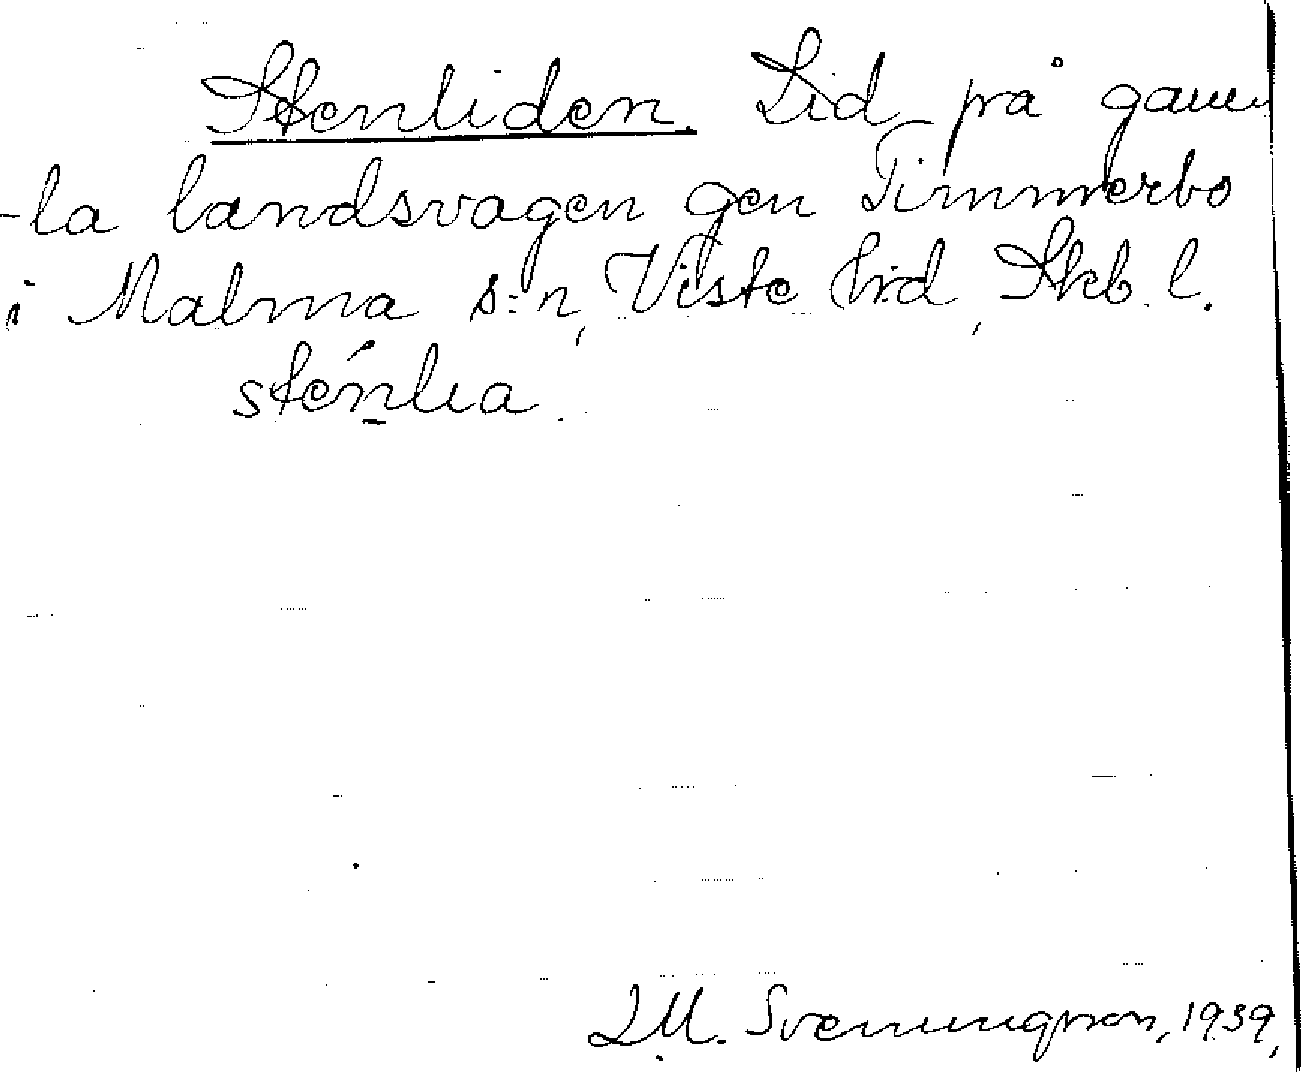 Stenliden. Lid på gam
-la landsvägen gen Timmerbo
i Malma s:n, Viste hd, Skb. l.
sténlia.
I.M. Svenungson, 1939,